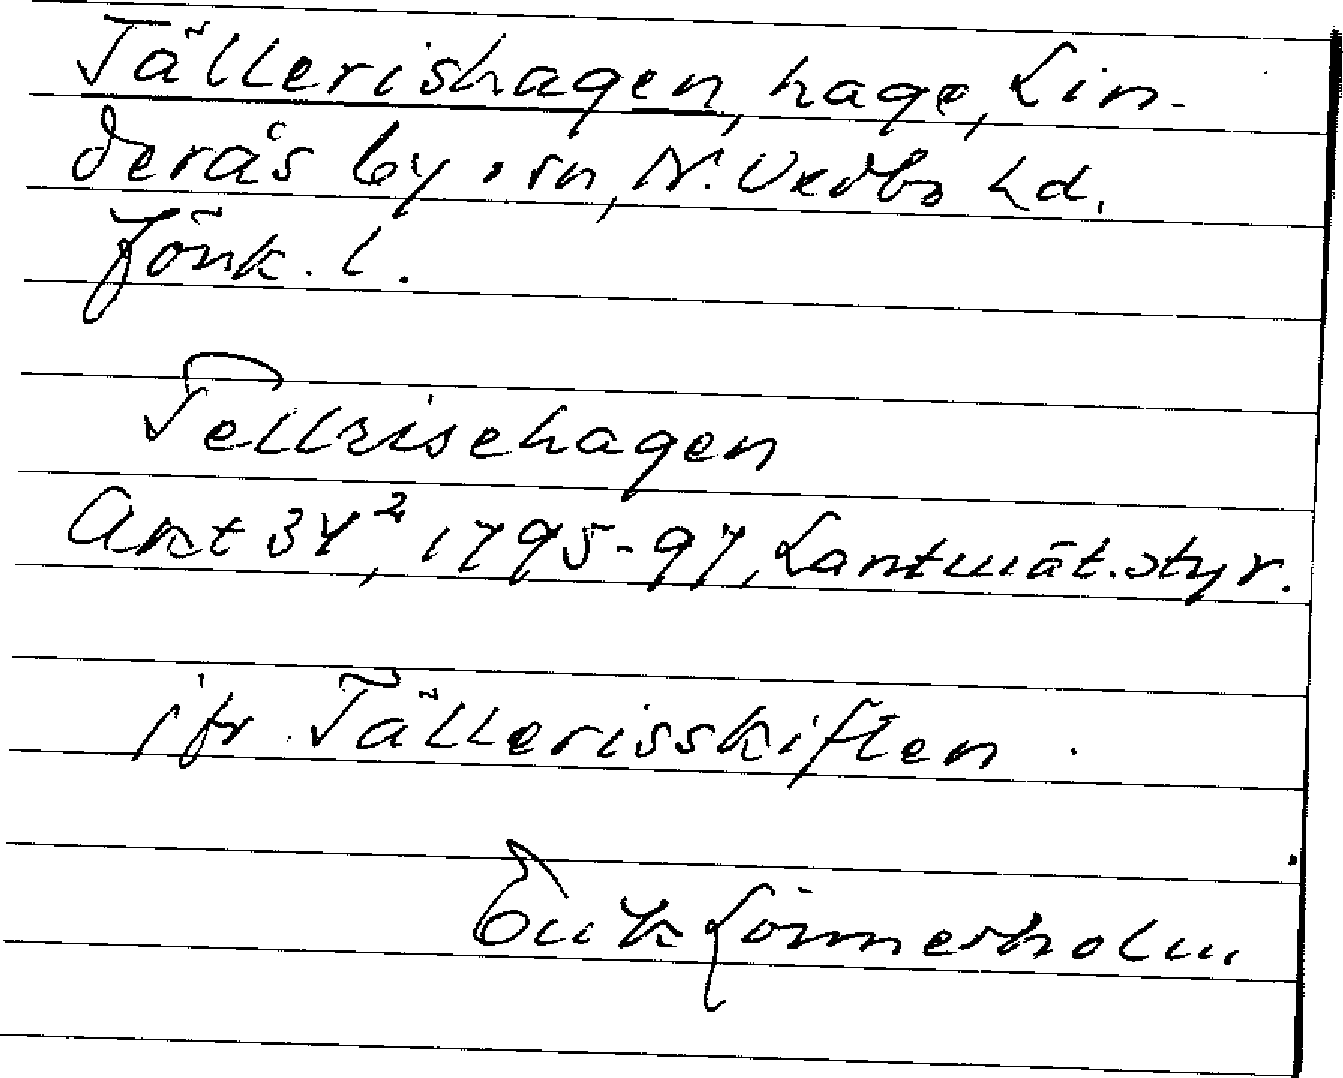 Tällerishagen, hage, Lin-
derås by o sn, N. Vedbo hd.
Jönk. l.
Tellrisehagen
Akt 34², 1795-97, Lantmät.styr.
jfr Tällerisskiften
Erik Lönnerholm.